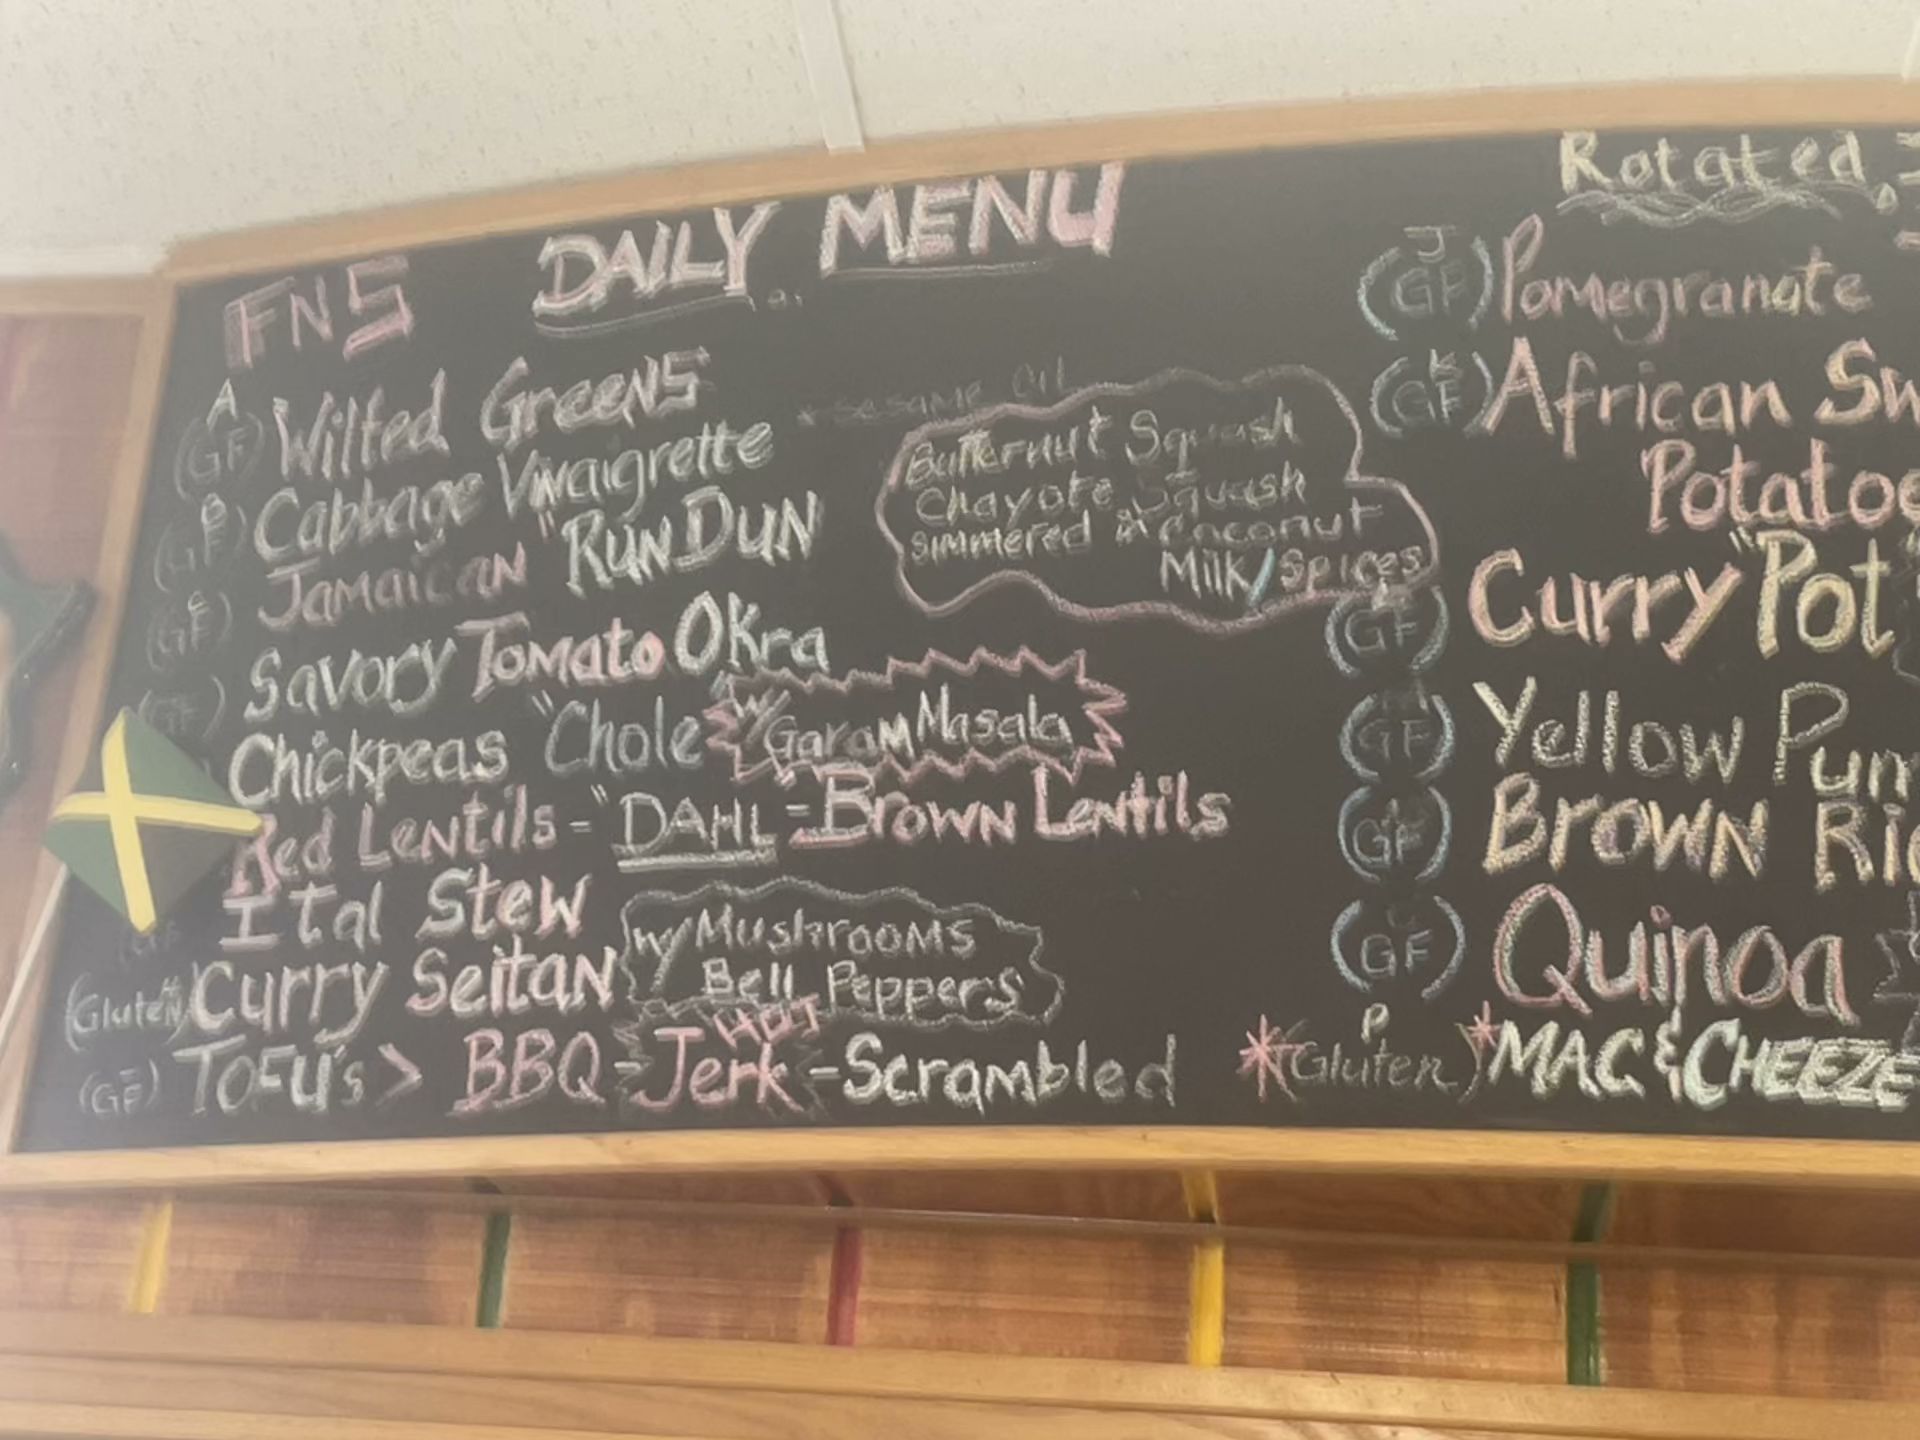 FNS DAILY MENU
A
(GF) Wilted Greens * SESAME OIL
B
(GF) Cabbage Vinaigrette
C
(GF) Jamaican "RUN DUN
Butternut Squash
Chayote Squash
simmered in Coconut
Milk/Spices
Savory Tomato OKra
Chickpeas "Chole" w/ Garam Masala
Red Lentils - "DAHL - Brown Lentils
I Tal Stew
(Gluten) Curry Seitan w/ Mushrooms
Bell Peppers
HOT
(GF) TOFU's > BBQ - Jerk - Scrambled
Rotated
J
(GF) Pomegranate
K
(GF) African Sw
Potatoe
(GF) Curry "Pot
(GF) Yellow Pum
(GF) Brown Ric
(GF) Quinoa
P
*(Gluten)* MAC & CHEEZE